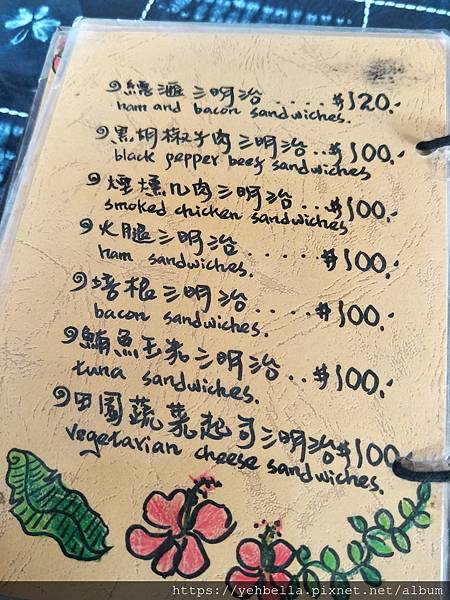 總滙三明治.....$120.-
ham and bacon sandwiches.
黑胡椒牛肉三明治..$100.-
black pepper beef sandwiches
煙燻几肉三明治...$100.-
smoked chicken sandwiches
火腿三明治.....$100.-
ham sandwiches.
培根三明治....$100.-
bacon sandwiches.
鮪魚玉米三明治..$100.-
tuna sandwiches.
田園蔬菜起司三明治$100.-
vegetarian cheese sandwiches.
https://yehbella.pixnet.net/album